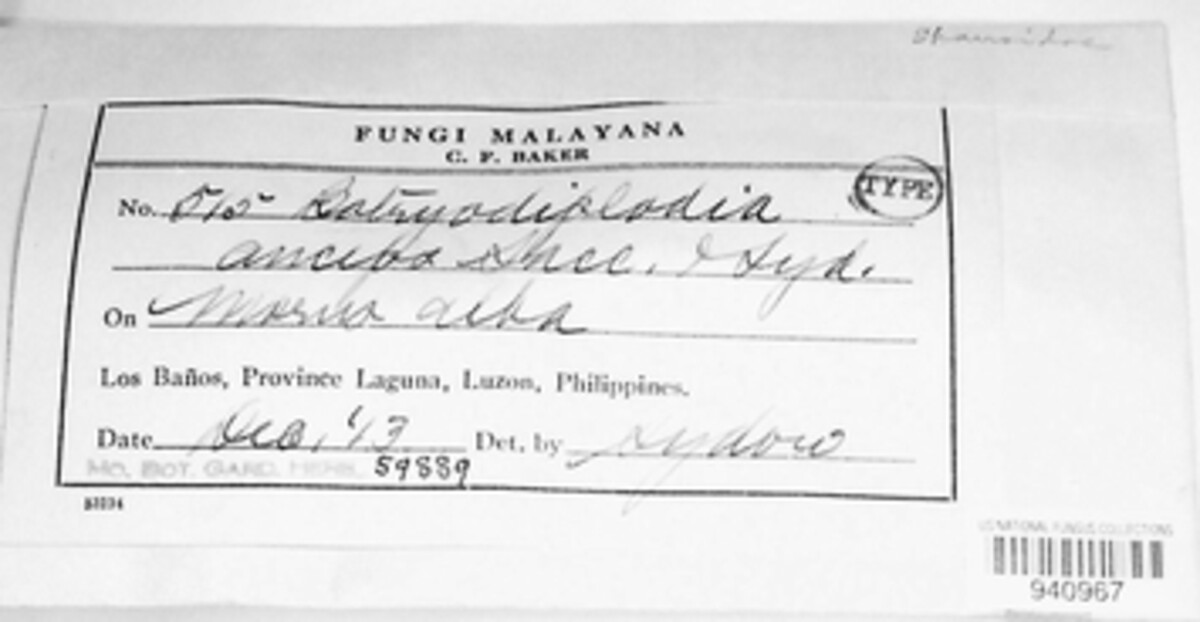 FUNGI MALAYANA
C. F. BAKER
TYPE
No. 515 Botryodiplodia
anceps Sacc. & Syd.
On Morus alba
Los Baños, Province Laguna, Luzon, Philippines.
Date Dec, '13 Det. by Sydow
MO. BOT. GARD. HERB. 59889
US NATIONAL FUNGUS COLLECTIONS
940967